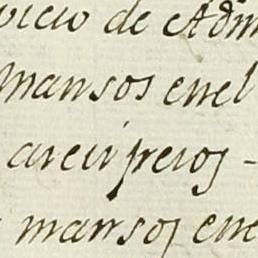 vicio de Adm
mansos enel
arcirpreros -
mansos ene